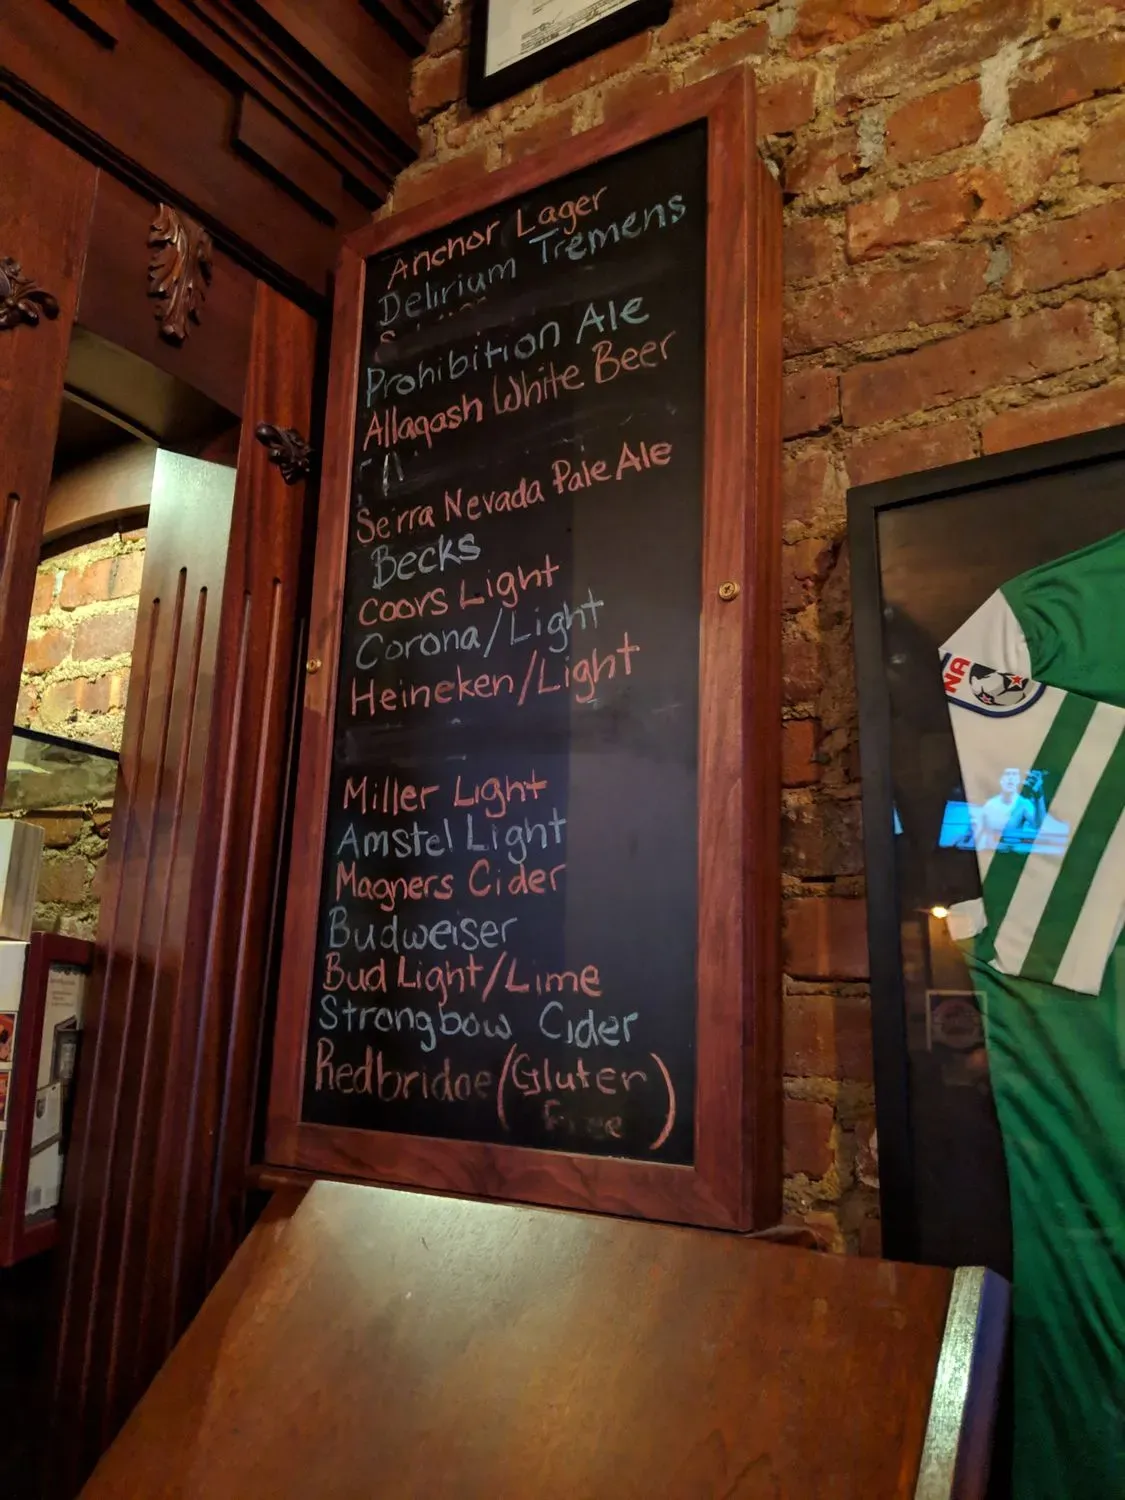 Anchor Lager
Delirium Tremens
Prohibition Ale
Allagash White Beer
Serra Nevada Pale Ale
Becks
Coors Light
Corona/Light
Heineken/Light
Miller Light
Amstel Light
Magners Cider
Budweiser
Bud Light/Lime
Strongbow Cider
Redbridge (Gluten
Free)
NA